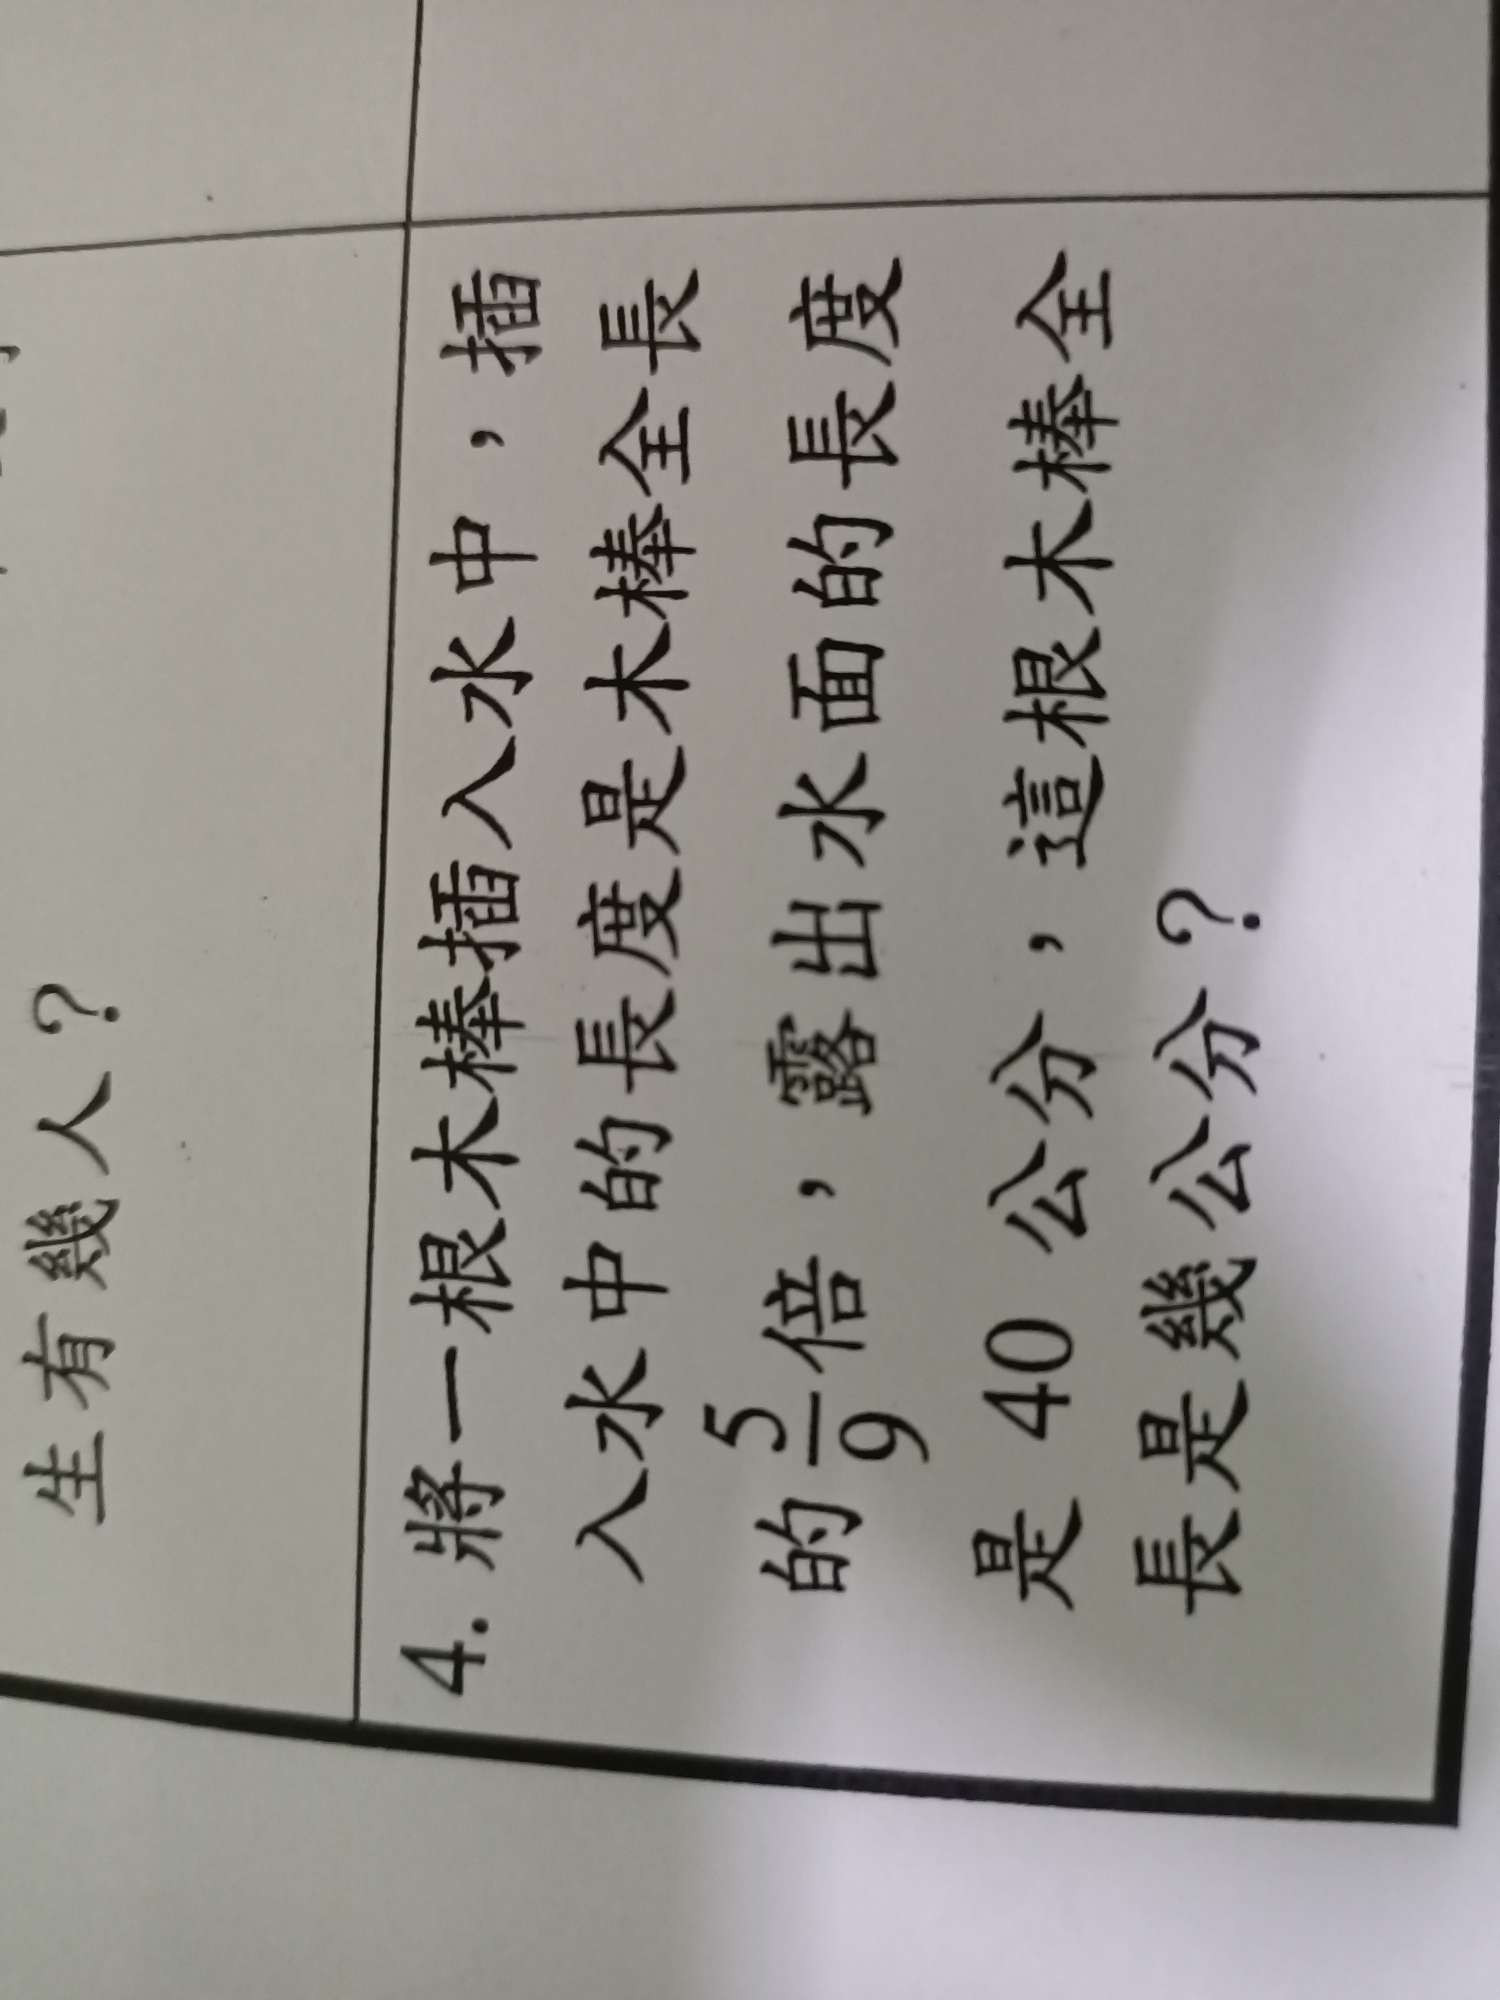 生有幾人？
4. 將一根木棒插入水中，插
入水中的長度是木棒全長
的5/9倍，露出水面的長度
是 40 公分，這根木棒全
長是幾公分？